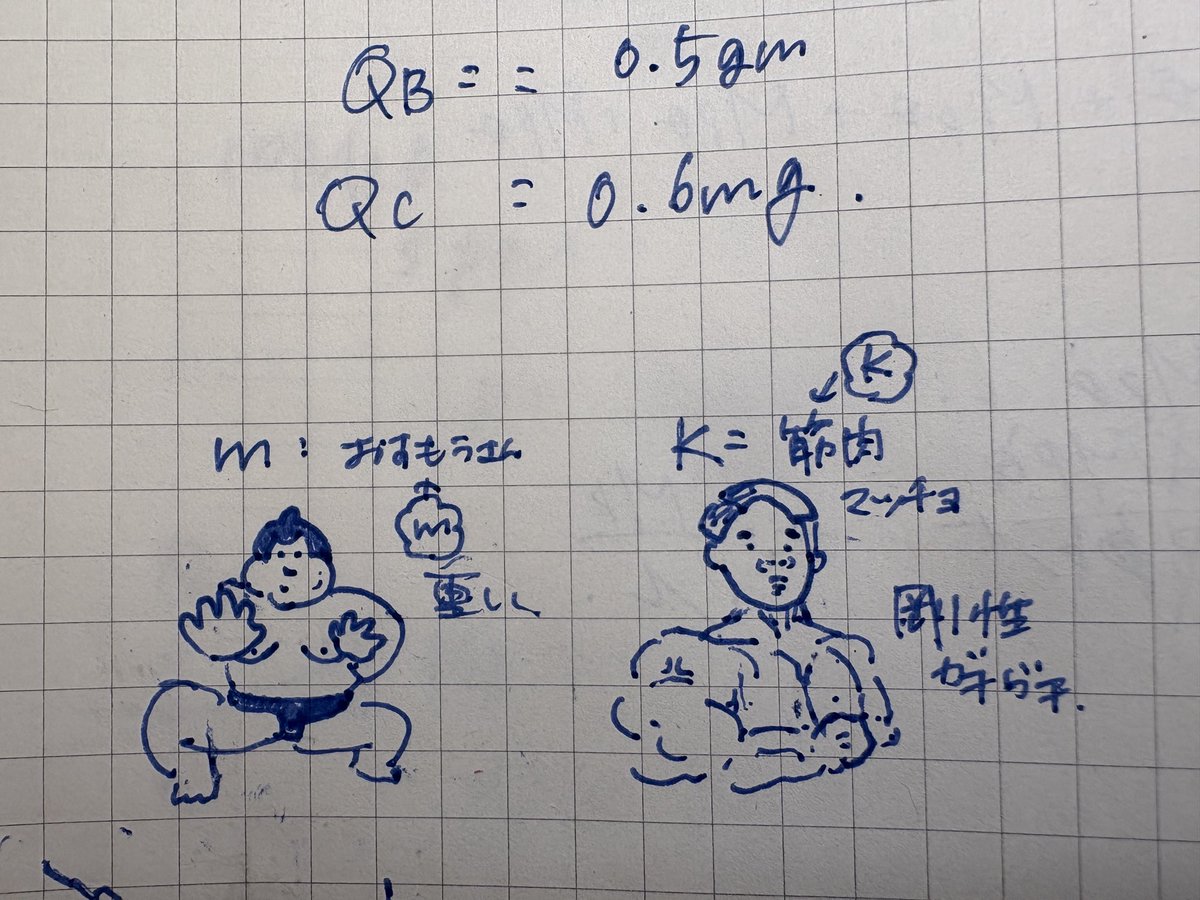 QB = = 0.5gm
QC = 0.6mg.
K
m : おすもうさん
K = 筋肉
マッチョ
m
重い
剛性
ガチガチ.